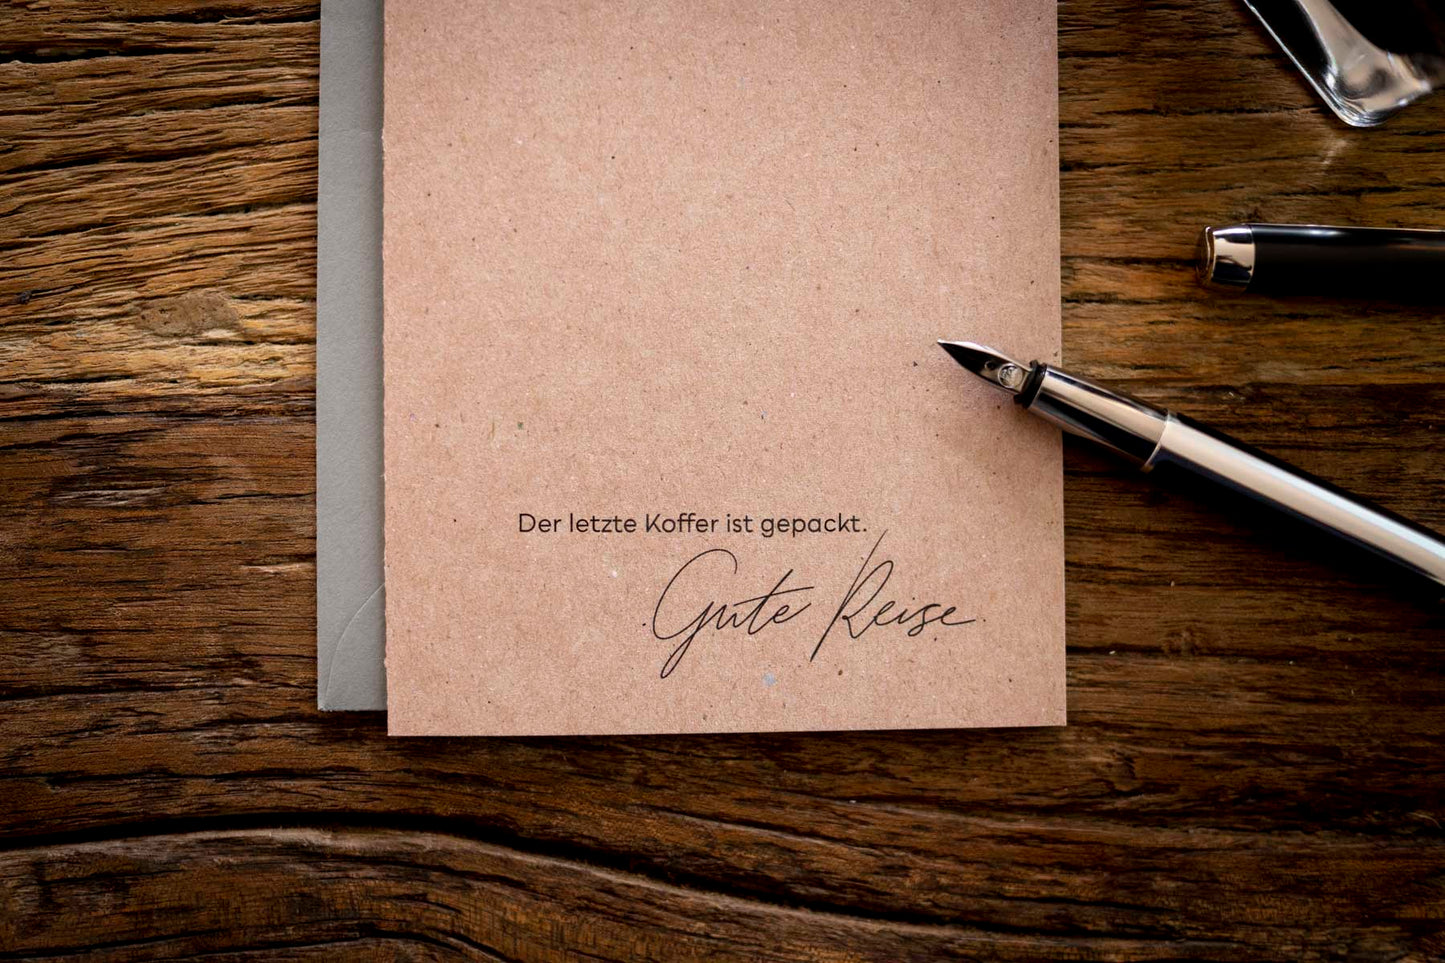 Der letzte Koffer ist gepackt.
Gute Reise